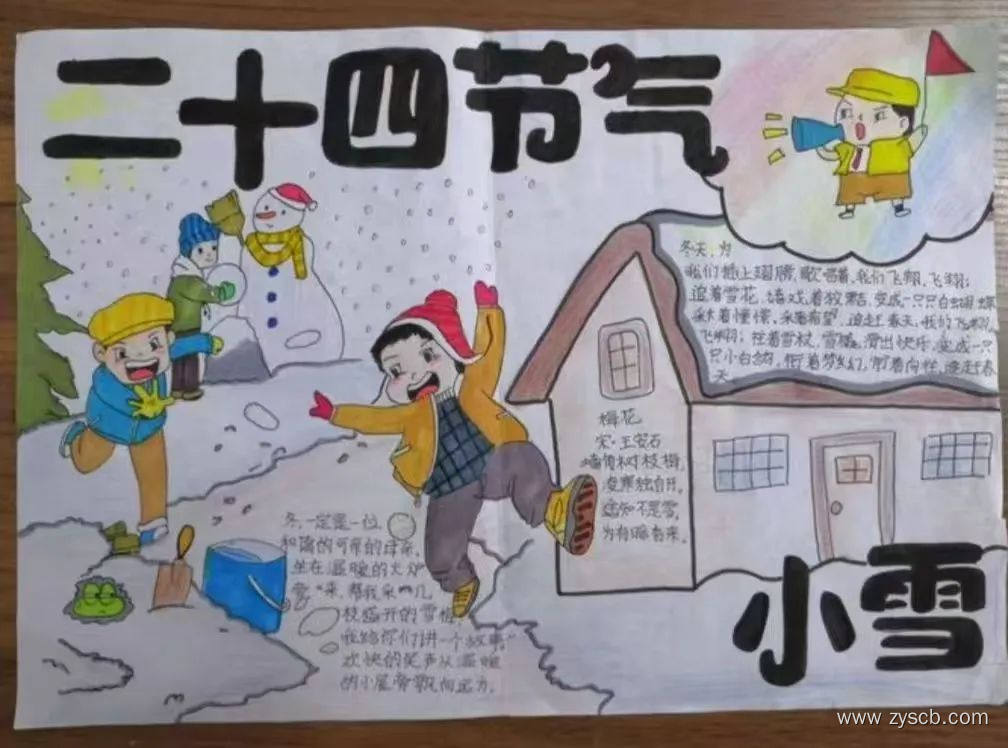 二十四节气
冬天，为
我们插上翅膀，歌唱着，我们飞翔，飞翔；
追着雪花，嬉戏着放飞，变成一只只白蝴蝶
憧憬，采着希望，追赶春天；我们飞翔，
飞翔；拄着雪杖，雪橇，滑出快乐，变成一只
只小白鸽，衔着梦幻，带着向往，追赶春
天。
梅花
宋·王安石
墙角树枝梅，
凌寒独自开。
遥知不是雪，
为有暗香来。
冬，一定是一位
和蔼的可亲的母亲，
坐在温暖的火炉
旁“来，帮我采几
枝盛开的雪梅，
我给你们讲一个故事”
欢快的笑声从温暖
的小屋旁飘向远方。
小雪
www.zyscb.com